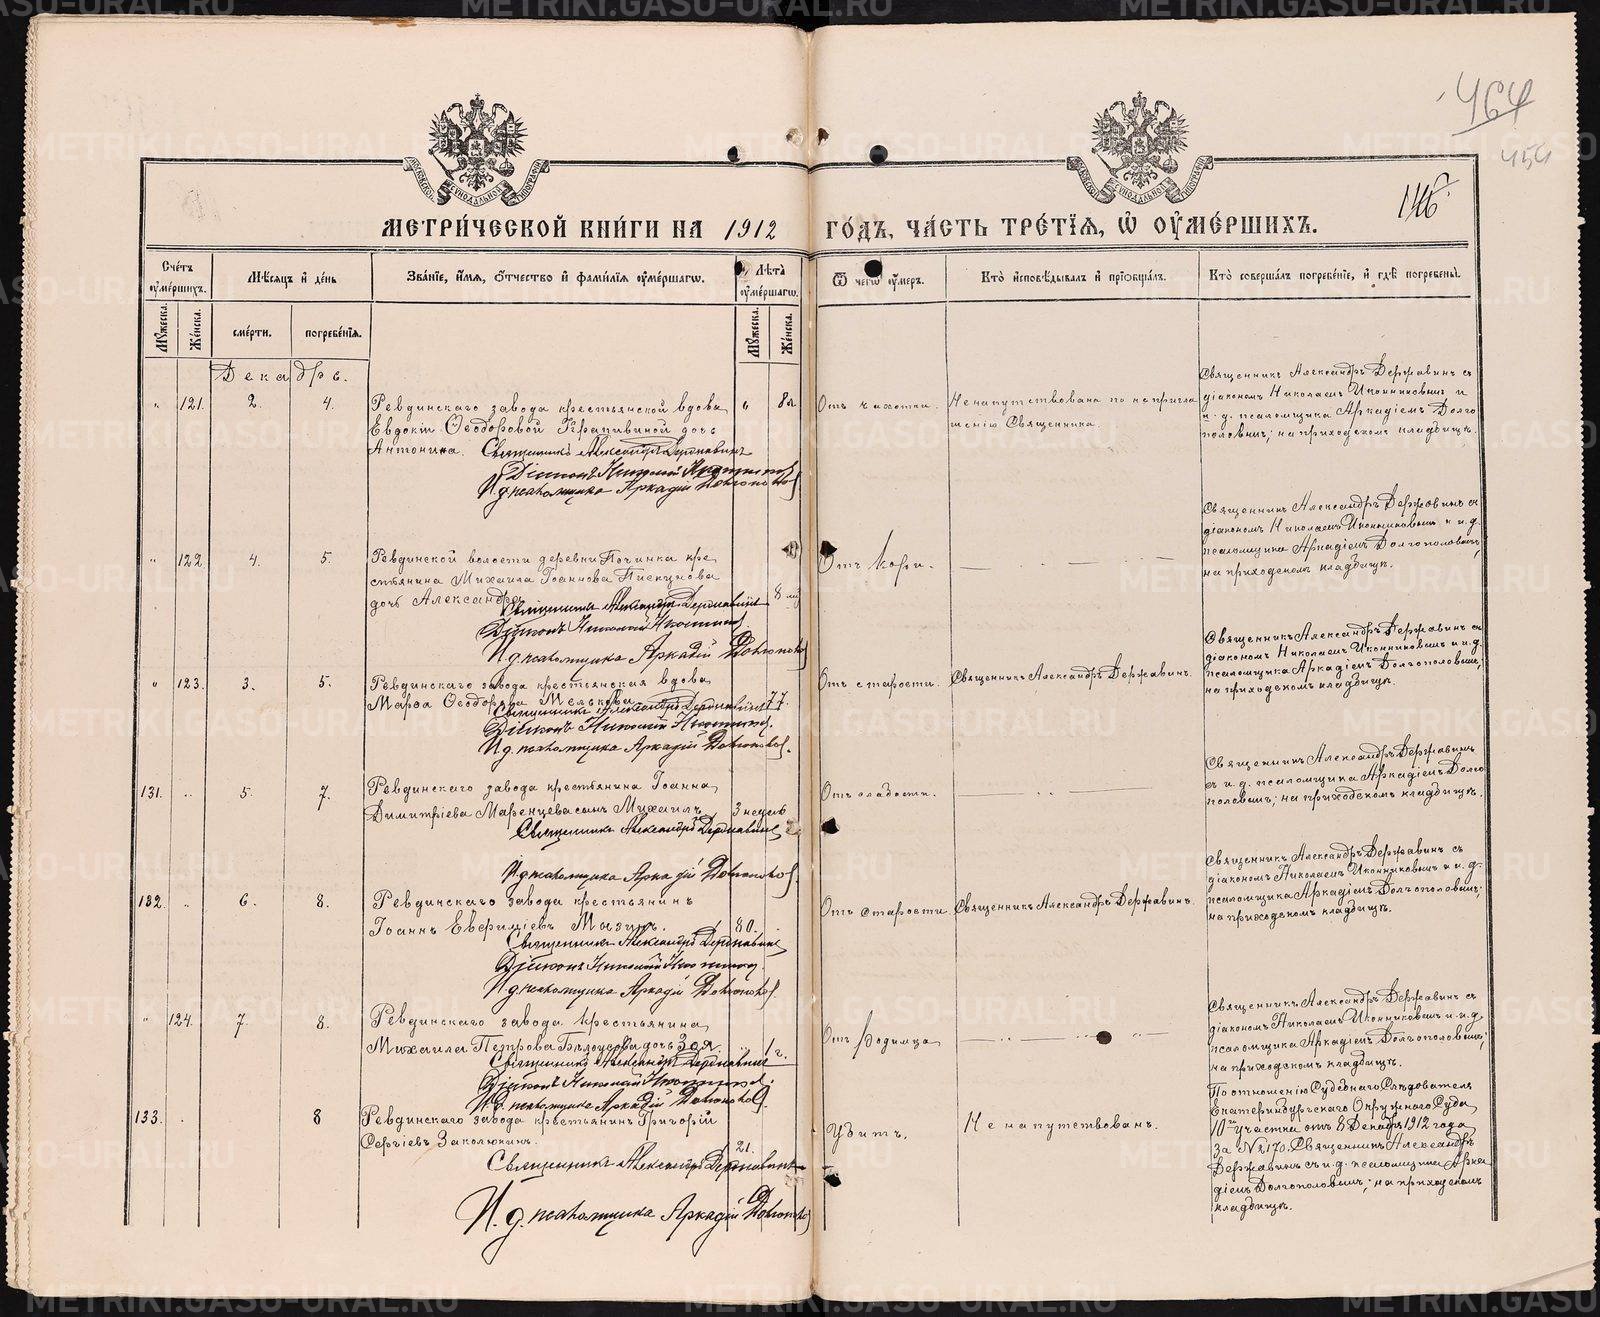 464
454
146
МЕТРИ́ЧЕСКОЙ КНИ́ГИ НА 1912 ГО́ДЪ, ЧА́СТЬ ТРЕ́ТЇѦ, Ѡ҆ ОУ҆МЕ́РШИХЪ.
Сче́тъ оу҆ме́ршихъ.
Мѣ́сѧцъ и҆ де́нь
Зва́нїе, и҆́мѧ, ѻ҆́тчество и҆ фами́лїѧ оу҆ме́ршагѡ.
Лѣ́та оу҆ме́ршагѡ.
Ѿ чегѡ̀ оу҆́меръ.
Кто̀ и҆сповѣ́дывалъ и҆ прїѻбща́лъ.
Кто̀ соверша́лъ погребе́нїе, и҆ гдѣ̀ погребены̀.
Мꙋ́жеска.
Же́нска.
сме́рти.
погребе́нїѧ.
Мꙋ́жеска.
Же́нска.
Декабрь.
" 121. 2. 4.
Ревдинскаго завода крестьянской вдовы
Евдокіи Ѳеодоровой дочь
Антонина. Священникъ Александръ Державинъ
Діаконъ Николай Иконников
И. д. псаломщика Аркадій Долгополов
" 8
Отъ чахотки.
Не напутствована по непригла
шенію Священника.
Священникъ Александръ Державинъ съ
діакономъ Николаемъ Иконниковымъ и
и. д. псаломщика Аркадіемъ Долго
половымъ; на приходскомъ кладбищѣ.
" 122 4. 5.
Ревдинской волости деревни Починка кре
стьянина Михаила Іоаннова Пискунова
дочь Александра
8
Священникъ Александръ Державинъ
Діаконъ Николай Иконников
И. д. псаломщика Аркадій Долгополов
Отъ кори.
Священникъ Александръ Державинъ съ
діакономъ Николаемъ Иконниковымъ и и. д.
псаломщика Аркадіемъ Долгополовымъ;
на приходскомъ кладбищѣ.
" 123. 3. 5.
Ревдинскаго завода крестьянская вдова
Марѳа Ѳеодорова Мелькова
77.
Священникъ Александръ Державинъ
Діаконъ Николай Иконников
И. д. псаломщика Аркадій Долгополов.
Отъ старости.
Священникъ Александръ Державинъ.
Священникъ Александръ Державинъ съ
діакономъ Николаемъ Иконниковымъ и и. д.
псаломщика Аркадіемъ Долгополовымъ;
на приходскомъ кладбищѣ.
131. " 5. 7.
Ревдинскаго завода крестьянина Іоанна
Димитріева Маренцева сынъ Михаилъ
3 недѣль
Священникъ Александръ Державинъ
И. д. псаломщика Аркадій Долгополов
Отъ слабости.
Священникъ Александръ Державинъ
съ и. д. псаломщика Аркадіемъ Долго
половымъ; на приходскомъ кладбищѣ.
132. " 6. 8.
Ревдинскаго завода крестьянинъ
Іоаннъ Евѳиміевъ
80.
Священникъ Александръ Державинъ
Діаконъ Николай Иконников
И. д. псаломщика Аркадій Долгополов
Отъ старости
Священникъ Александръ Державинъ.
Священникъ Александръ Державинъ съ
діакономъ Николаемъ Иконниковымъ и и. д.
псаломщика Аркадіемъ Долгополовымъ;
на приходскомъ кладбищѣ.
" 124. 7. 8.
Ревдинскаго завода крестьянина
Михаила Петрова Бѣлоусова дочь Зоя
1 г.
Священникъ Александръ Державинъ
Діаконъ Николай Иконников
И. д. псаломщика Аркадій Долгополов
Отъ родимца
Священникъ Александръ Державинъ съ
діакономъ Николаемъ Иконниковымъ и и. д.
псаломщика Аркадіемъ Долгополовымъ;
на приходскомъ кладбищѣ.
133. 8
Ревдинскаго завода крестьянинъ Григорій
Сергіевъ Заколюкинъ.
21.
Священникъ Александръ Державинъ
И. д. псаломщика Аркадій Долгополов
Убитъ.
Не напутствованъ.
По отношенію Судебнаго Слѣдователя
Екатеринбургскаго Окружнаго Суда
10го участка отъ 8 Декабря 1912 года
за № 2170. Священникъ Александръ
Державинъ съ и. д. псаломщика Арка
діемъ Долгополовымъ; на приходскомъ
кладбищѣ.
METRIKI.GASO-URAL.RU